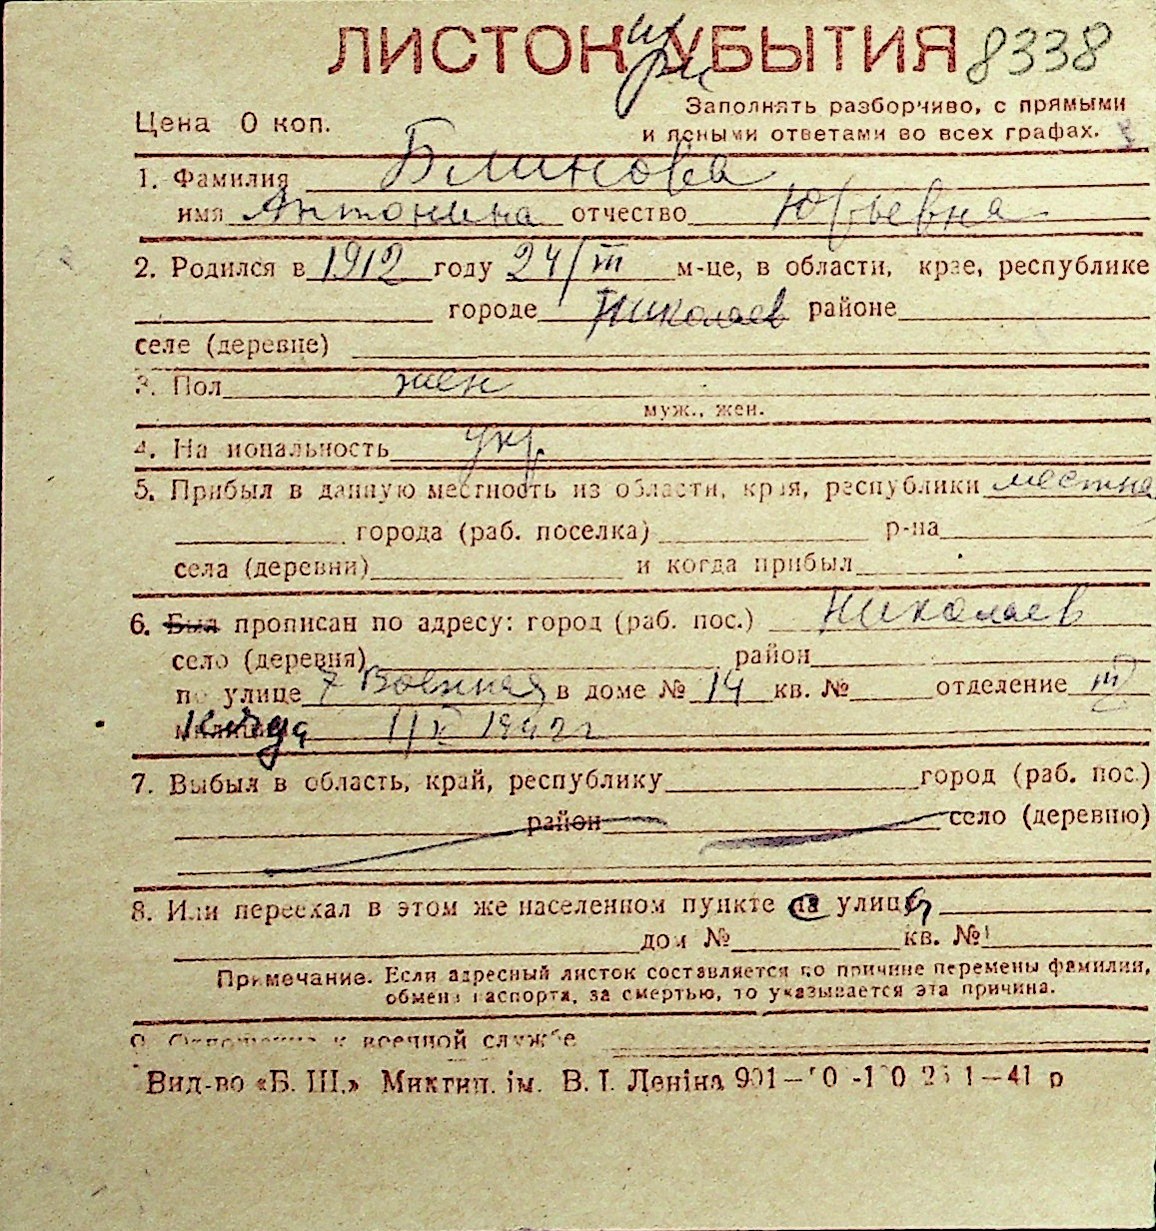 ЛИСТОК УБЫТИЯ 8338
при
Цена 0 коп.
Заполнять разборчиво, с прямыми
и ясными ответами во всех графах.
1. Фамилия Блинова
имя Антонина отчество Юрьевна
2. Родился в 1912 году 24/III м-це, в области, крае, республике
городе Николаев районе
селе (деревне)
3. Пол жен
муж., жен.
4. Национальность укр.
5. Прибыл в данную местность из области, края, республики местная
города (раб. поселка) р-на
села (деревни) и когда прибыл
6. Был прописан по адресу: город (раб. пос.) Николаев
село (деревня) район
по улице 7 Военная в доме № 14 кв. № отделение III
1942 г
7. Выбыл в область, край, республику город (раб. пос.)
район село (деревню)
8. Или переехал в этом же населенном пункте на улицу
дом № кв. №
Примечание. Если адресный листок составляется по причине перемены фамилии,
обмена паспорта, за смертью, то указывается эта причина.
9. Отношение к военной службе
Вид-во «Б. Ш.» Миктип. ім. В. І. Леніна